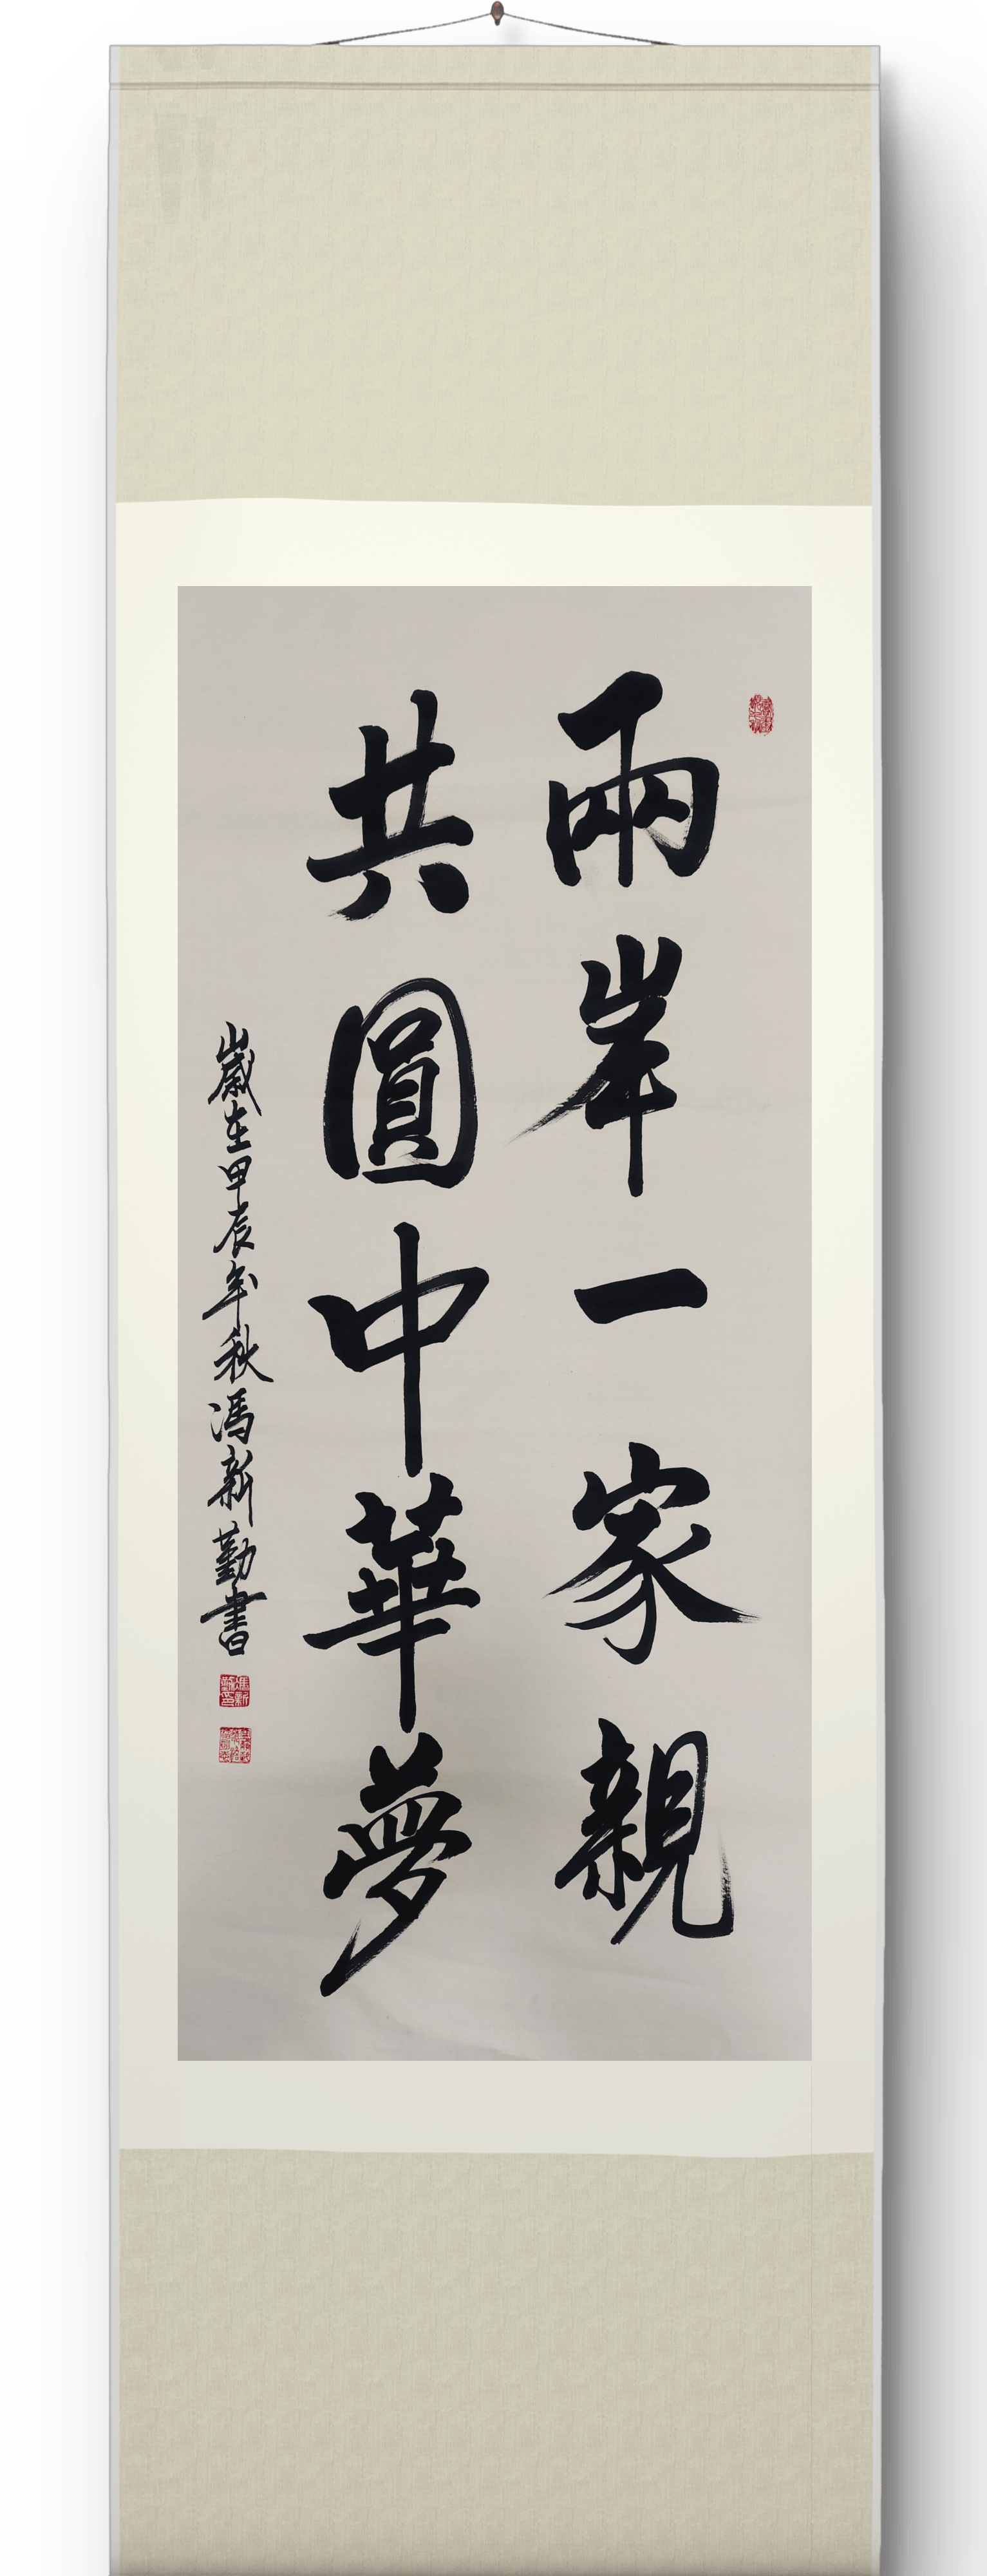 兩岸一家親
共圓中華夢
歲在甲辰年秋馮新勤書